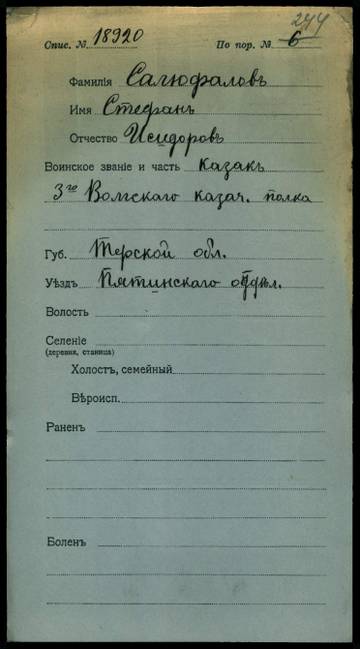 244
Спис. № 18920 По пор. № 6
Фамилія Салюфаловъ
Имя Стефанъ
Отчество Исидоровъ
Воинское званіе и часть казакъ
3го Волгскаго казач. полка
Губ. Терской обл.
Уѣздъ Пятинскаго отдѣл.
Волость
Селеніе
(деревня, станица)
Холостъ, семейный
Вѣроисп.
Раненъ
Боленъ